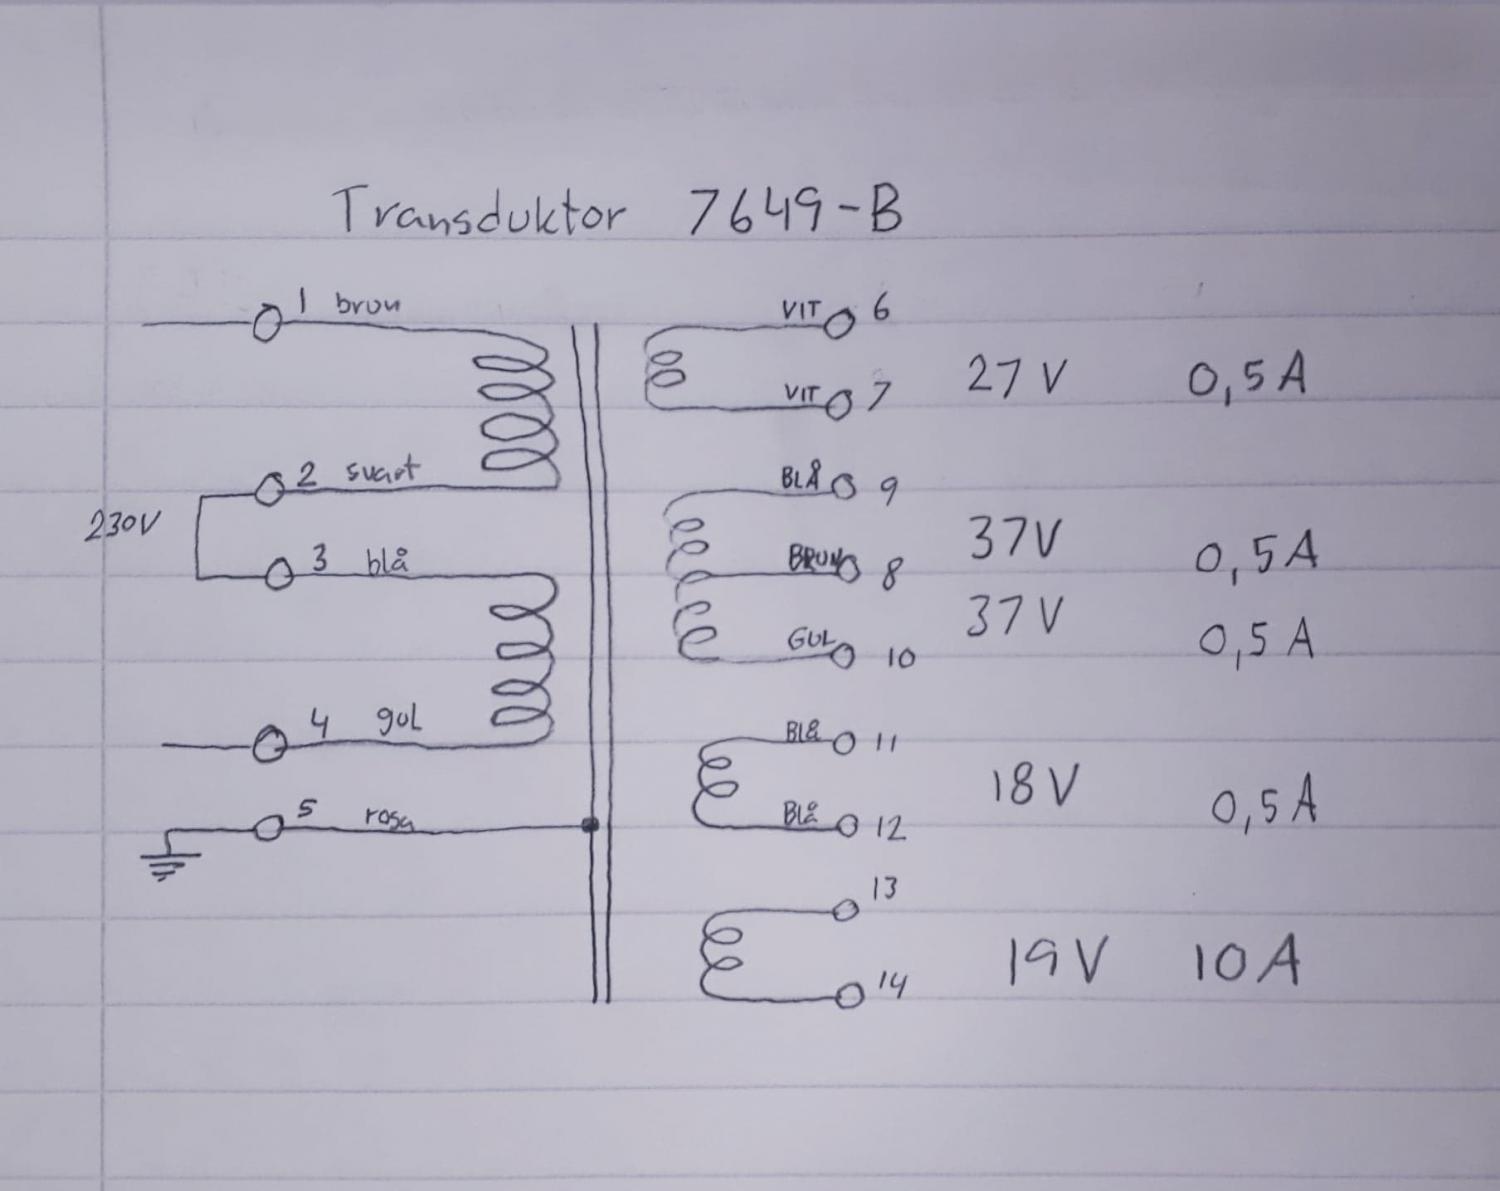 Transduktor 7649-B
1 brun
VIT 6
27 V 0,5 A
VIT 7
2 svart
BLÅ 9
230V
37V 0,5 A
3 blå
BRUN 8
37 V 0,5 A
GUL 10
4 gul
Blå 11
18 V 0,5 A
5 rosa
Blå 12
13
19 V 10 A
14